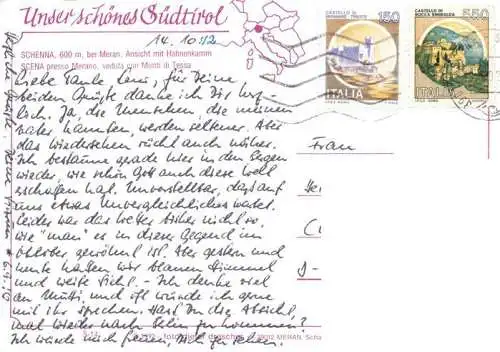 Unser schönes Südtirol
14.10.
SCHENNA, 600 m, bei Meran. Ansicht mit Hahnenkamm
SCENA presso Merano, veduta con Monti di Tessa
CASTELLO DI
MIRAMARE TRIESTE
150
ITALIA
CASTELLO DI
ROCCA SINIBALDA
550
ITALIA
Liebe Tante Leni, für Deine
beiden Grüße danke ich Dir herz-
lich. Ja, die Menschen, die meinen
Vater kannten, werden seltener. Aber
das Wiedersehen rückt auch näher.
Ich bestaune grade hier in den Bergen
wieder, wie schön Gott auch diese Welt
erschaffen hat. Unvorstellbar, daß auf
uns etwas Unvergleichliches wartet.
Leider war das Wetter bisher nicht so,
wie "man" es in dieser Gegend im
Oktober gewöhnt ist. Aber gestern und
heute hatten wir blauen Himmel
und weite Sicht. - Ich denke viel
an Mutti, und oft würde ich gerne
mit ihr sprechen. Hast Du die Absicht,
mal wieder nach Berlin zu kommen?
Ich würde mich freuen, Dich zu sehen.
Frau
MERAN